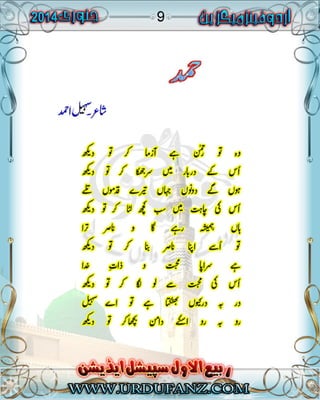 جنوری 2014
9
اردو فینز میگزین
حمد
شاعر۔ سہیل احمد
وہ تو رحمٰن ہے آزما کر تو دیکھ
اُس کے دربار میں سر جھکا کر تو دیکھ
ہوں گے دونوں جہاں تیرے قدموں تلے
اُس کی چاہت میں سب کچھ لٹا کر تو دیکھ
ہاں ہمیشہ رہے گا وہ ناصر ترا
تو اُسے اپنا ناصر بنا کر تو دیکھ
ہے سراپا محبت وہ ذاتِ خدا
اُس کی محبت سے لو لگا کر تو دیکھ
در بہ در کیوں بھٹکتا ہے تو اے سہیل
رو بہ رو اسکے دامن بچھا کر تو دیکھ
ربیع الاول سپیشل ایڈیشن
WWW.URDUFANZ.COM